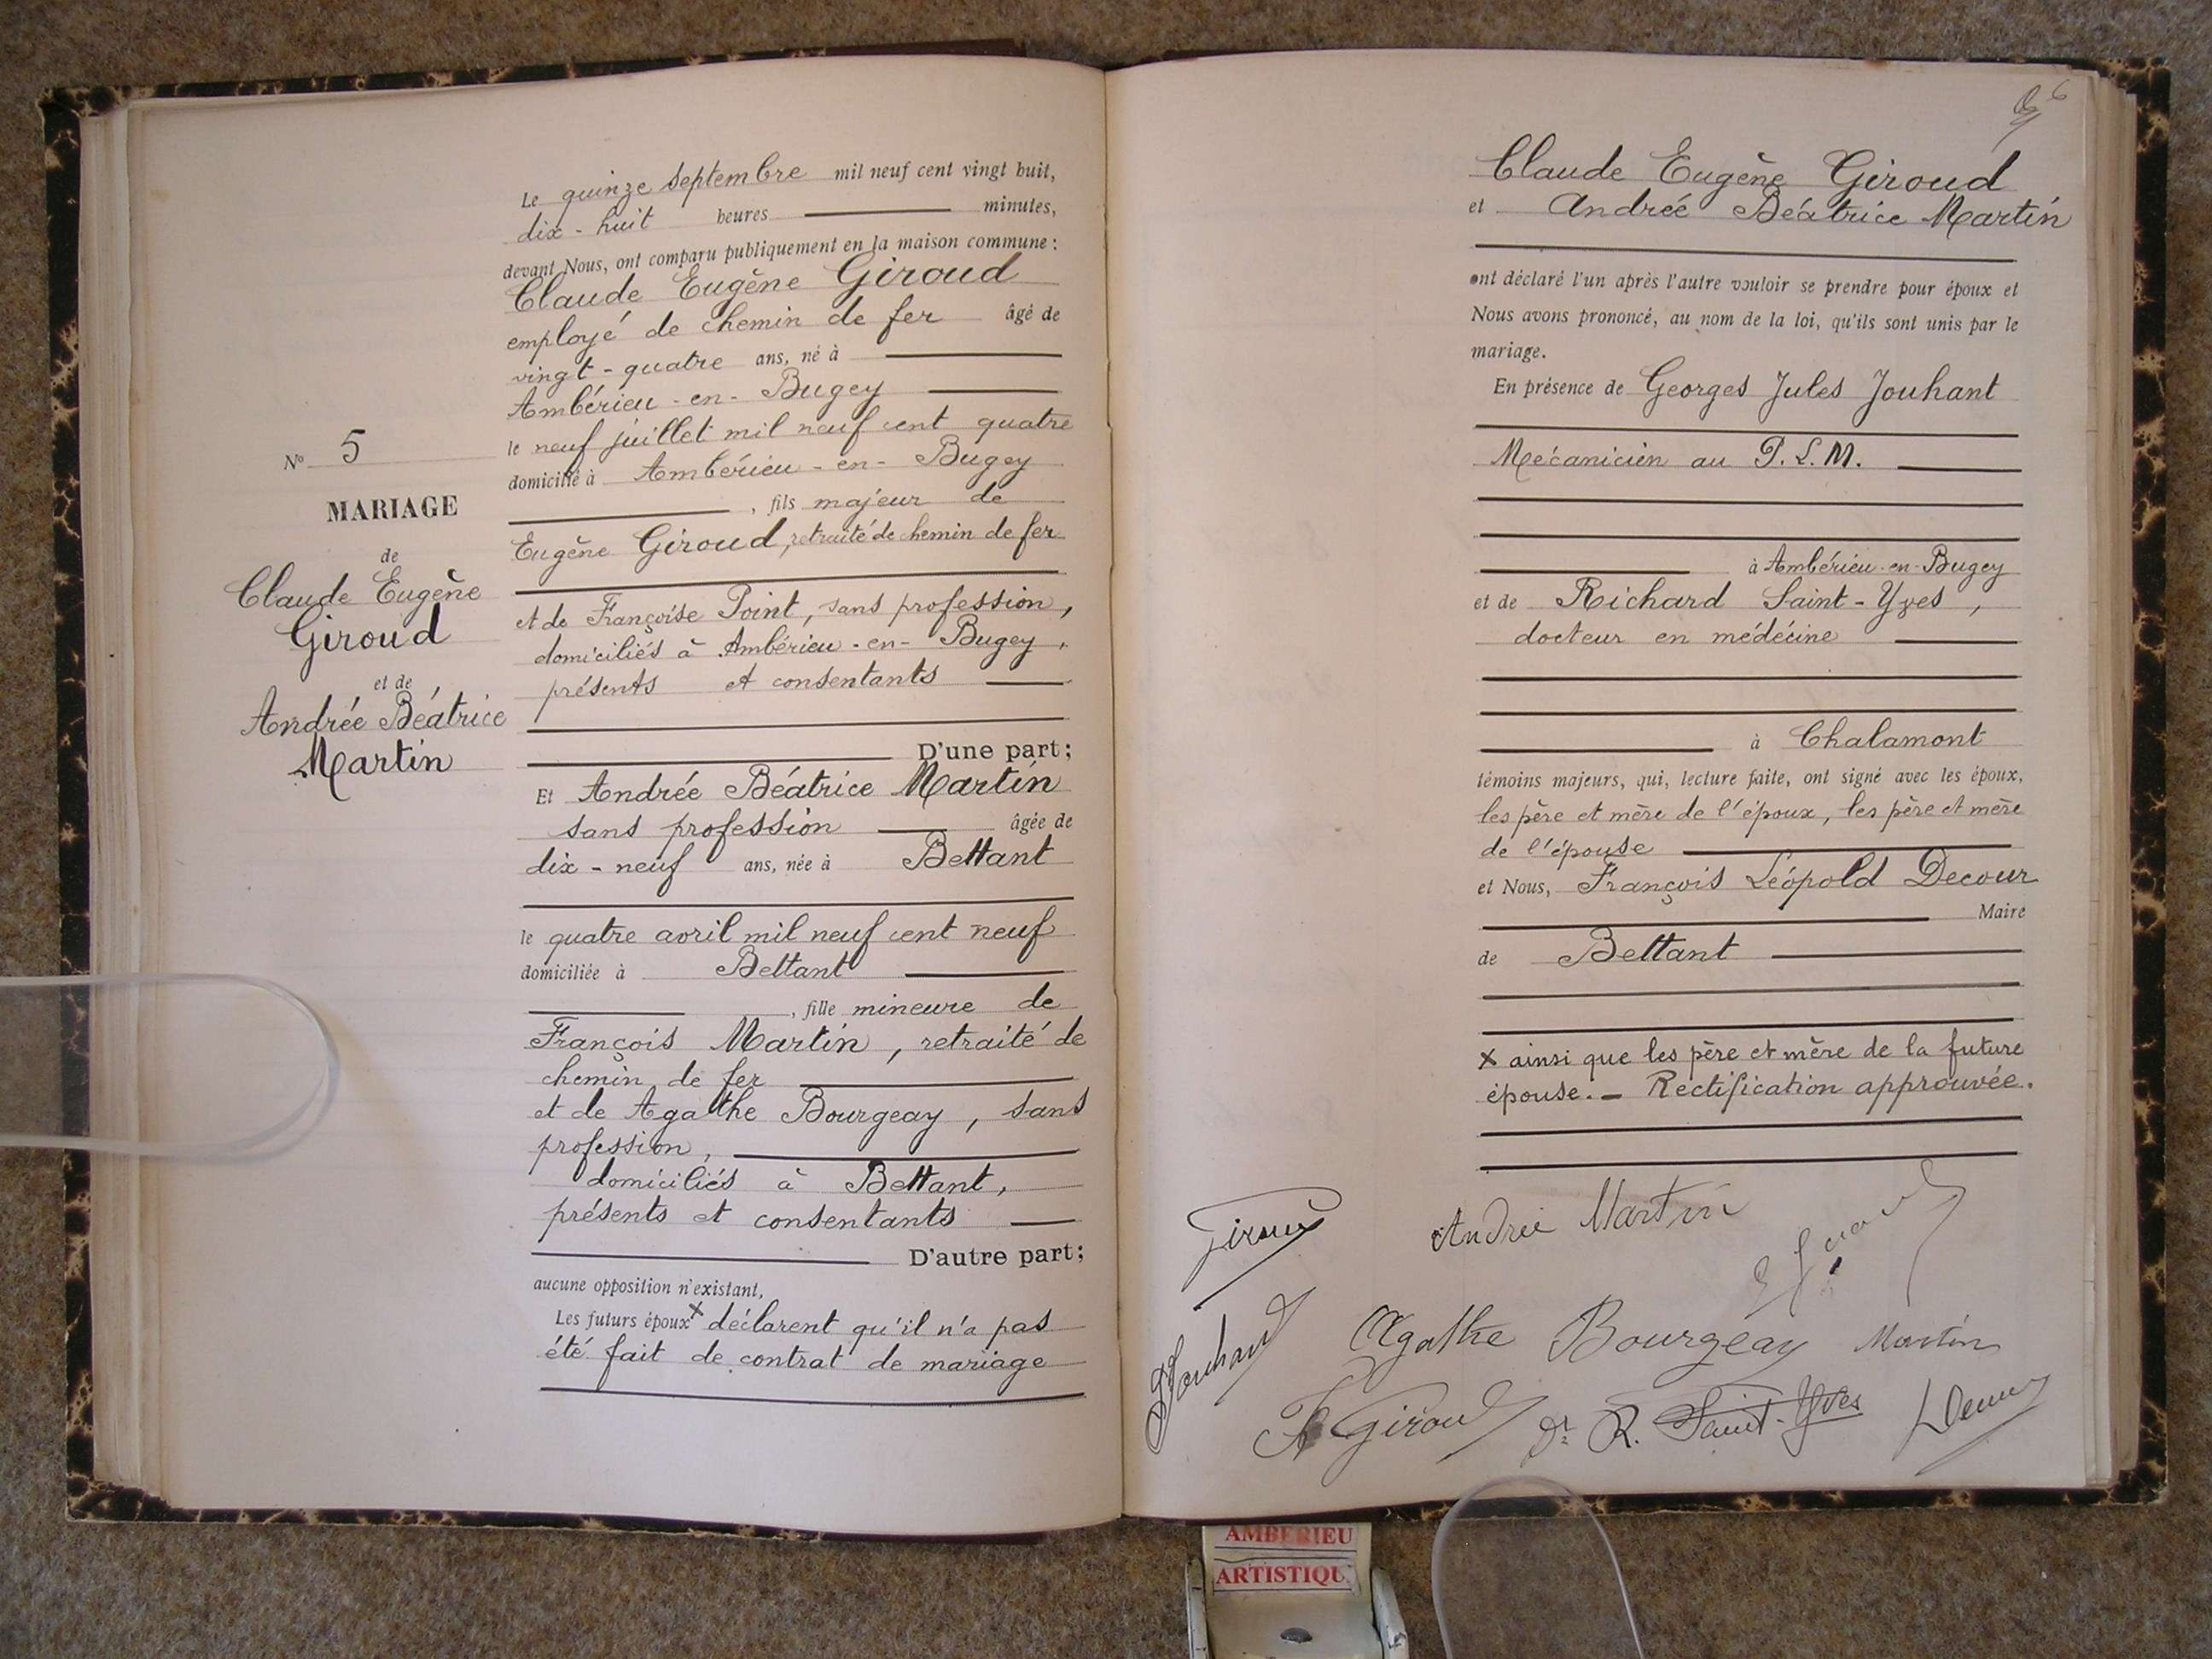 Le quinze septembre mil neuf cent vingt huit,
dix-huit heures minutes,
devant Nous, ont comparu publiquement en la maison commune :
Claude Eugène Giroud
employé de chemin de fer âgé de
vingt-quatre ans, né à
Ambérieu-en-Bugey
le neuf juillet mil neuf cent quatre
domicilié à Ambérieu-en-Bugey
, fils majeur de
Eugène Giroud, retraité de chemin de fer
et de Françoise Point, sans profession,
domiciliés à Ambérieu-en-Bugey,
présents et consentants
D'une part;
Et Andrée Béatrice Martin
sans profession âgée de
dix-neuf ans, née à Bettant
le quatre avril mil neuf cent neuf
domiciliée à Bettant
, fille mineure de
François Martin, retraité de
chemin de fer
et de Agathe Bourgeay, sans
profession,
domiciliés à Bettant,
présents et consentants
D'autre part;
aucune opposition n'existant,
Les futurs époux x déclarent qu'il n'a pas
été fait de contrat de mariage
No 5
MARIAGE
de
Claude Eugène
Giroud
et de
Andrée Béatrice
Martin
6
Claude Eugène Giroud
et Andrée Béatrice Martin
ont déclaré l'un après l'autre vouloir se prendre pour époux et
Nous avons prononcé, au nom de la loi, qu'ils sont unis par le
mariage.
En présence de Georges Jules Jouhant
Mécanicien au P.L.M.
à Ambérieu-en-Bugey
et de Richard Saint-Yves,
docteur en médécine
à Chalamont
témoins majeurs, qui, lecture faite, ont signé avec les époux,
les père et mère de l'époux, les père et mère
de l'épouse
et Nous, François Léopold Decour
Maire
de Bettant
x ainsi que les père et mère de la future
épouse. - Rectification approuvée.
Giroud Andrée Martin
Jouhant Agathe Bourgeay Martin
F Giroud Dr R. Saint-Yves Decour
AMBERIEU
ARTISTIQU